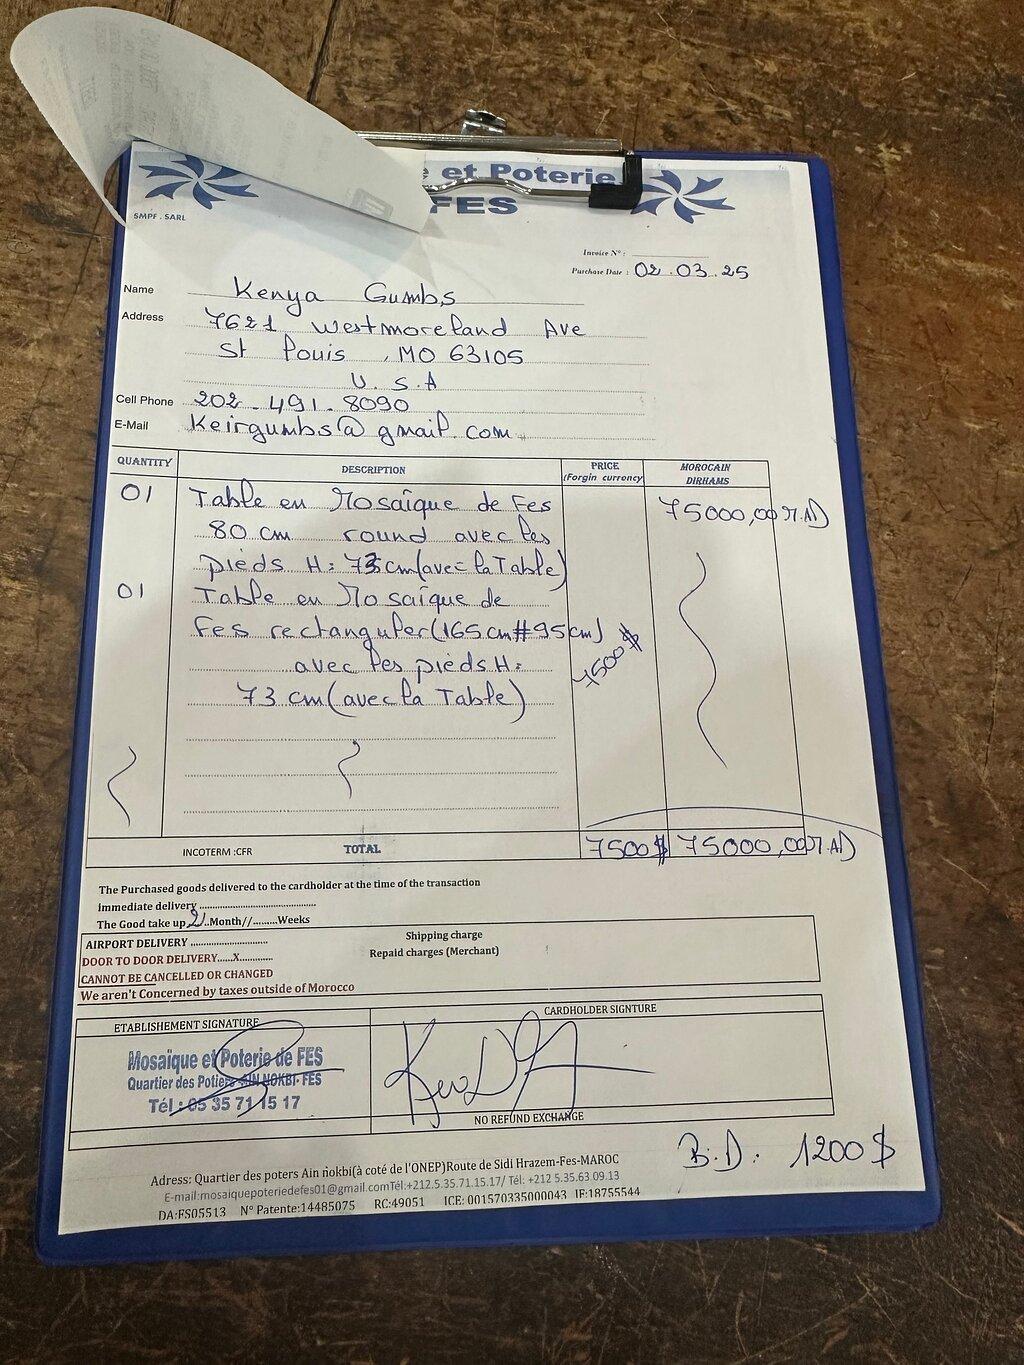 et Poterie
FES
SMPF . SARL
Invoice N° :
Purchase Date : 02.03.25
Name Kenya Gumbs
Address 7621 Westmoreland Ave
St Louis , MO 63105
U.S.A
Cell Phone 202.491.8090
E-Mail Keirgumbs@gmail.com
QUANTITY DESCRIPTION PRICE (Forgin currency MOROCAIN DIRHAMS
01 Table en Mosaïque de Fes 75000,00 M.AD
80 cm round avec les
pieds H: 73cm(avec la Table)
01 Table en Mosaïque de
Fes rectanguler(165cm#95cm) 7500$
avec les pieds H:
73 cm(avec la Table)
INCOTERM :CFR TOTAL 7500$ 75000,00 M.AD
The Purchased goods delivered to the cardholder at the time of the transaction
immediate delivery
The Good take up 2 Month//.........Weeks
AIRPORT DELIVERY Shipping charge
DOOR TO DOOR DELIVERY.....X............. Repaid charges (Merchant)
CANNOT BE CANCELLED OR CHANGED
We aren't Concerned by taxes outside of Morocco
ETABLISHEMENT SIGNATURE CARDHOLDER SIGNTURE
Mosaïque et Poterie de FES
Quartier des Potiers AIN NOKBI- FES
Tél : 05 35 71 15 17
NO REFUND EXCHANGE
B.D. 1200$
Adress: Quartier des poters Ain nokbi(à coté de l'ONEP)Route de Sidi Hrazem-Fes-MAROC
E-mail:mosaiquepoteriedefes01@gmail.comTél:+212.5.35.71.15.17/ Tél: +212 5.35.63.09.13
DA:FS05513 N° Patente:14485075 RC:49051 ICE: 001570335000043 IF:18755544